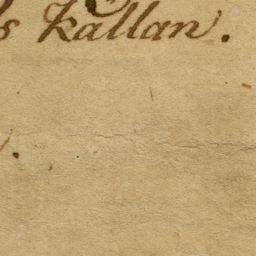 s kallan.